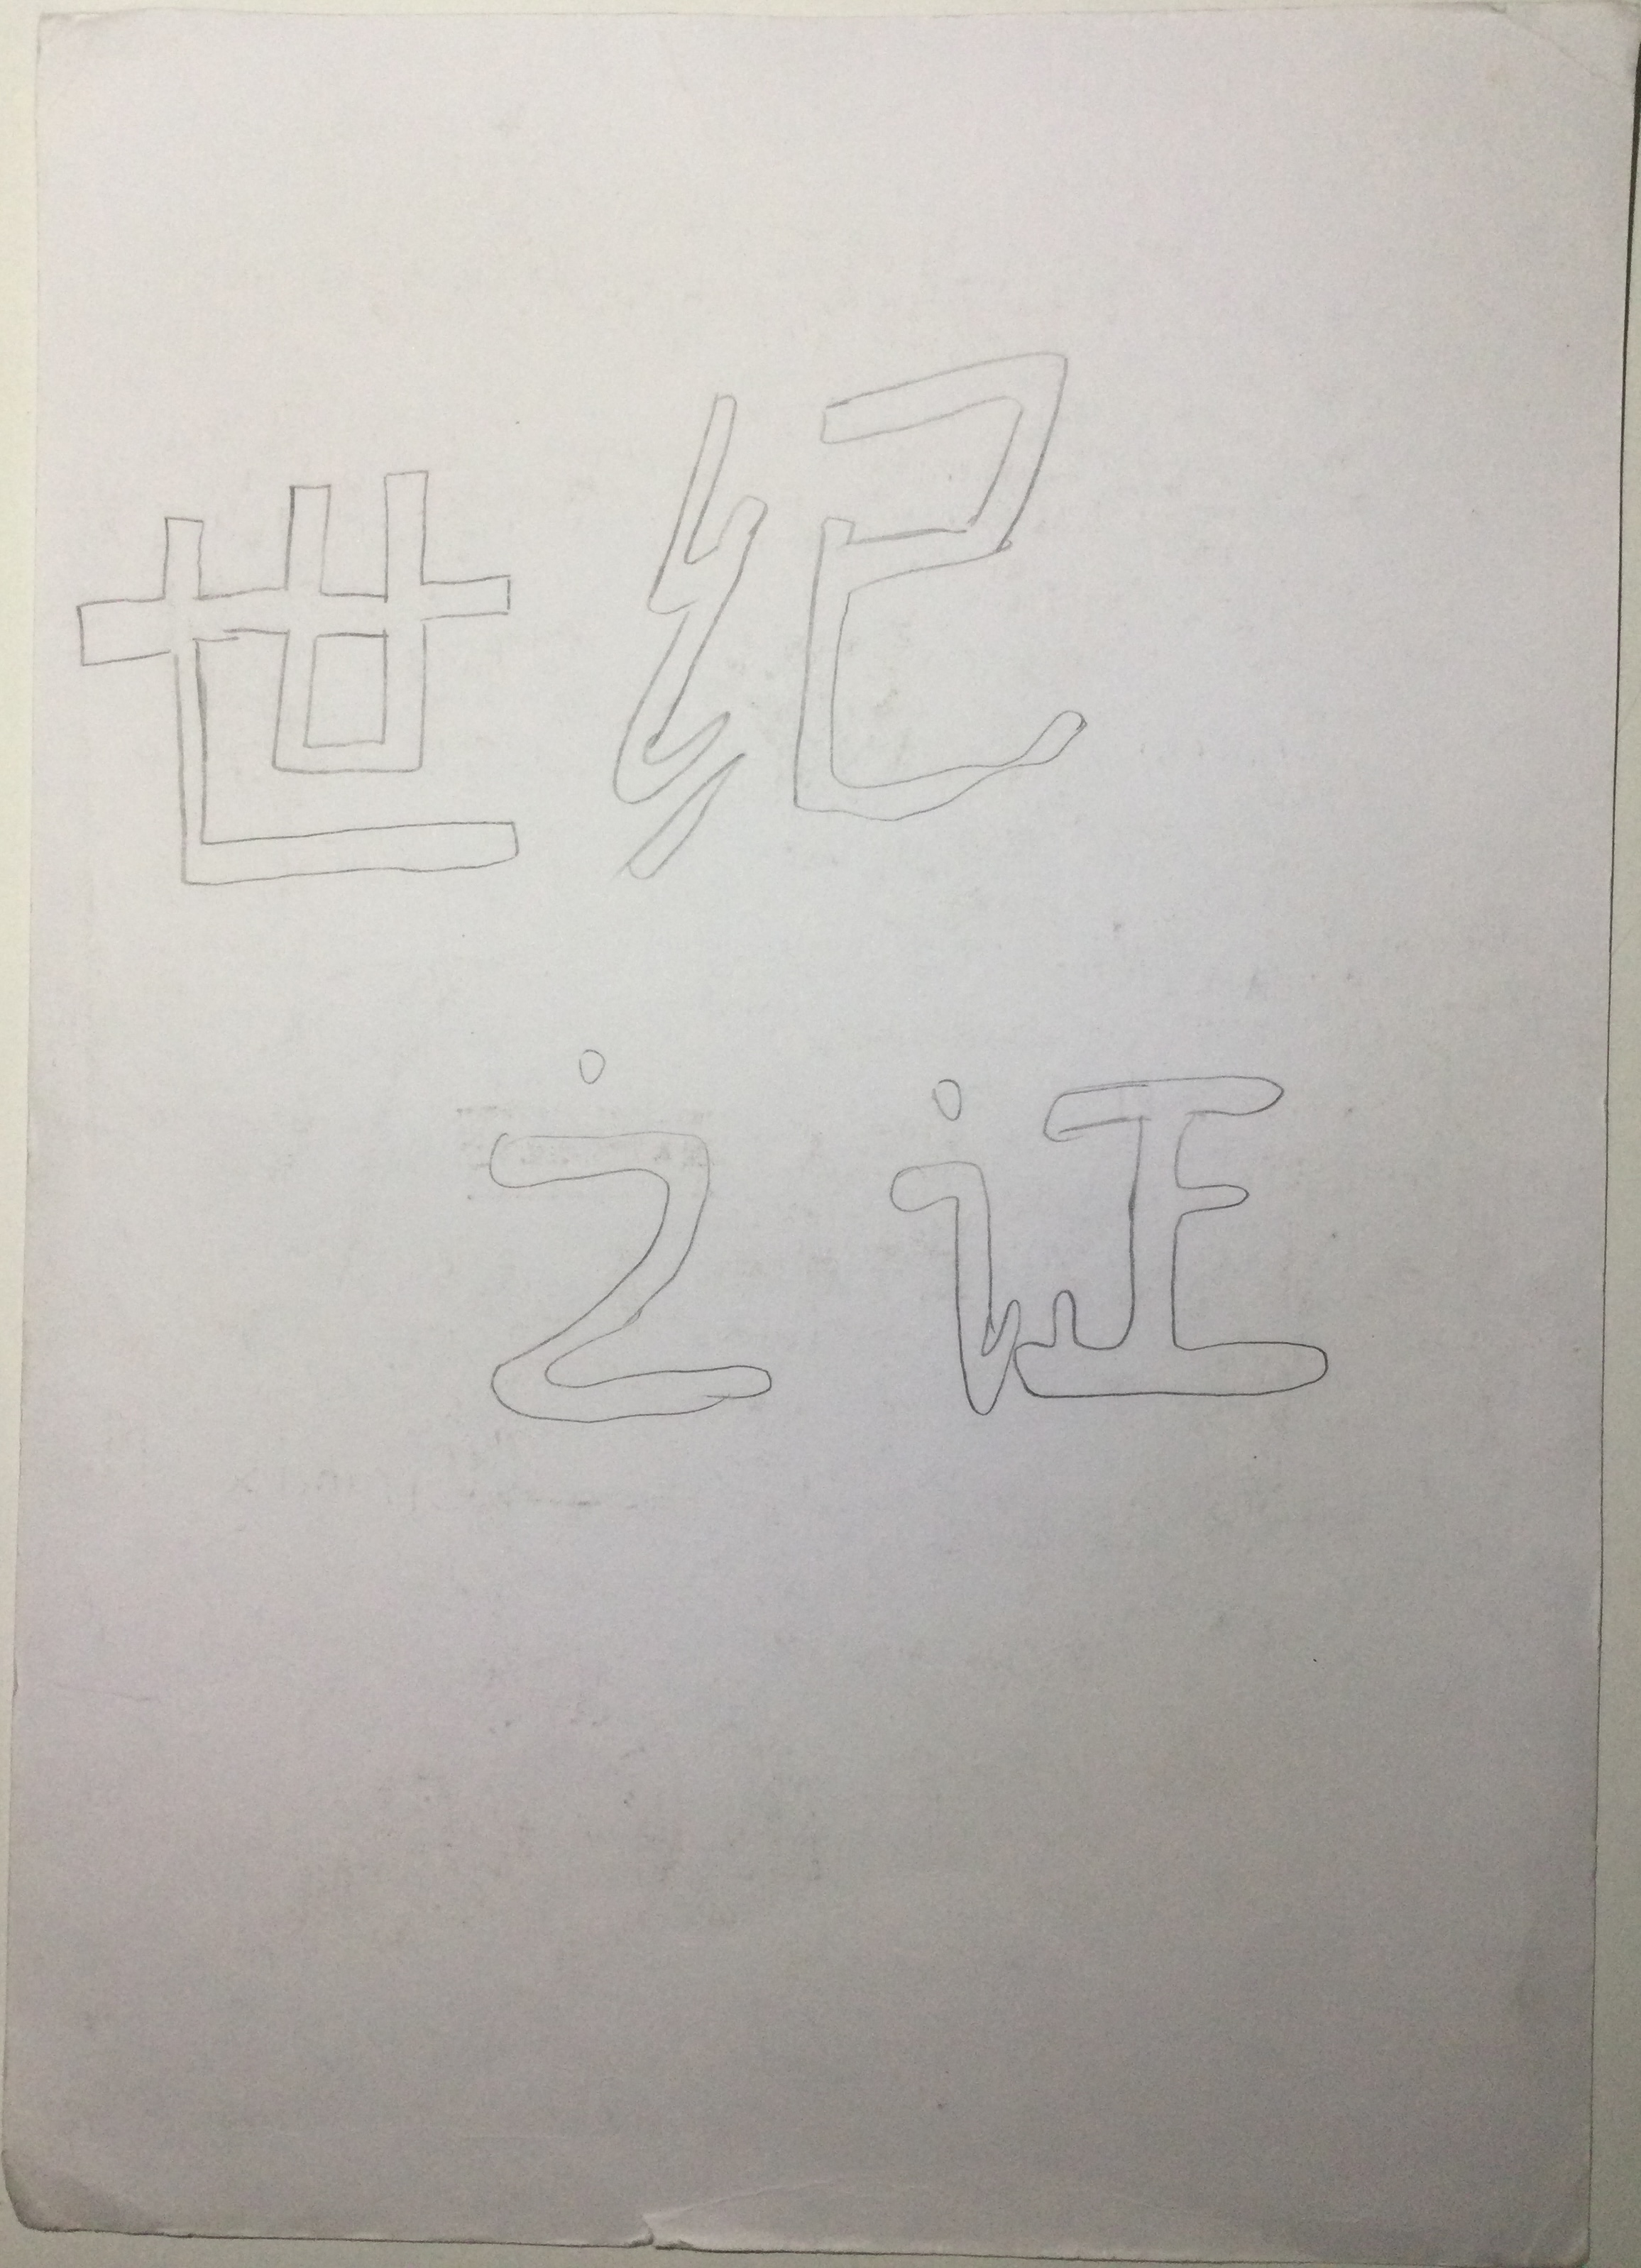 世纪
之证